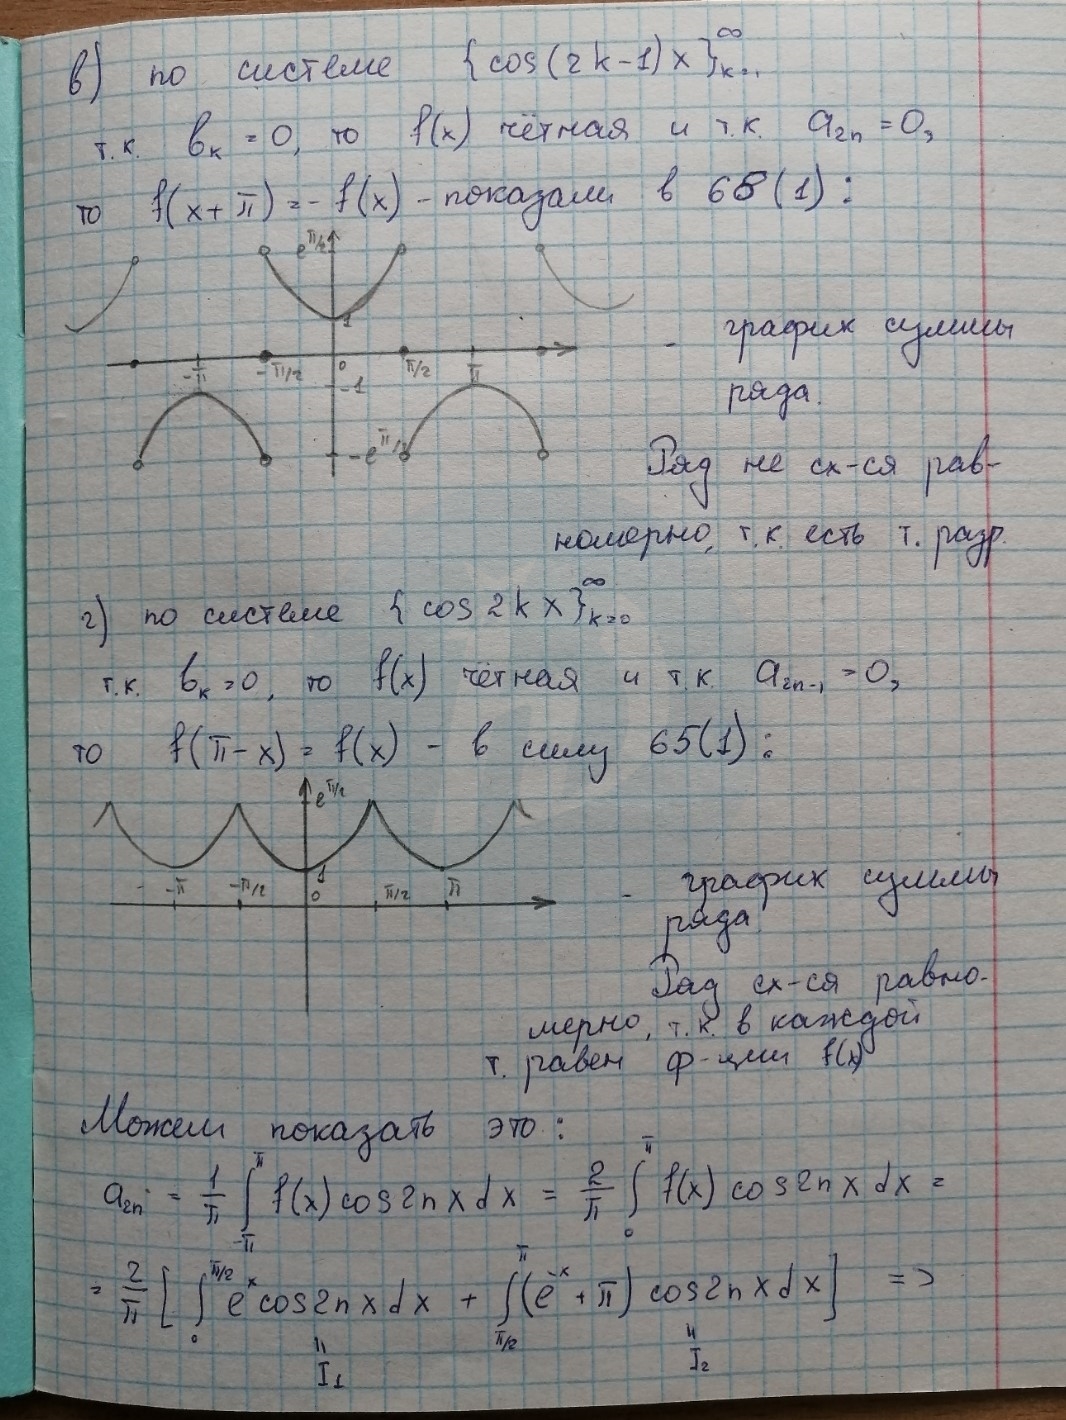 в) по системе {cos(2k-1)x}_{k=1}^∞
т.к. b_k = 0, то f(x) чётная и т.к. a_{2n} = 0,
то f(x+π) = -f(x) - показали в 65(1):
e^{π/2}
1
-π -π/2 0 π/2 π
-1
-e^{π/2}
- график суммы
ряда.
Ряд не сх-ся рав-
номерно, т.к. есть т. разр.
г) по системе {cos 2k x}_{k=0}^∞
т.к. b_k = 0, то f(x) чётная и т.к. a_{2n-1} = 0,
то f(π-x) = f(x) - в силу 65(1):
e^{π/2}
1
-π -π/2 0 π/2 π
- график суммы
ряда.
Ряд сх-ся равно-
мерно, т.к. в каждой
т. равен ф-ции f(x)
Можем показать это:
a_{2n} = 1/π ∫_{-π}^{π} f(x) cos 2n x dx = 2/π ∫_0^π f(x) cos 2n x dx =
= 2/π [ ∫_0^{π/2} e^x cos 2n x dx + ∫_{π/2}^π (e^{-x} + π) cos 2n x dx ] =>
" "
I_1 I_2